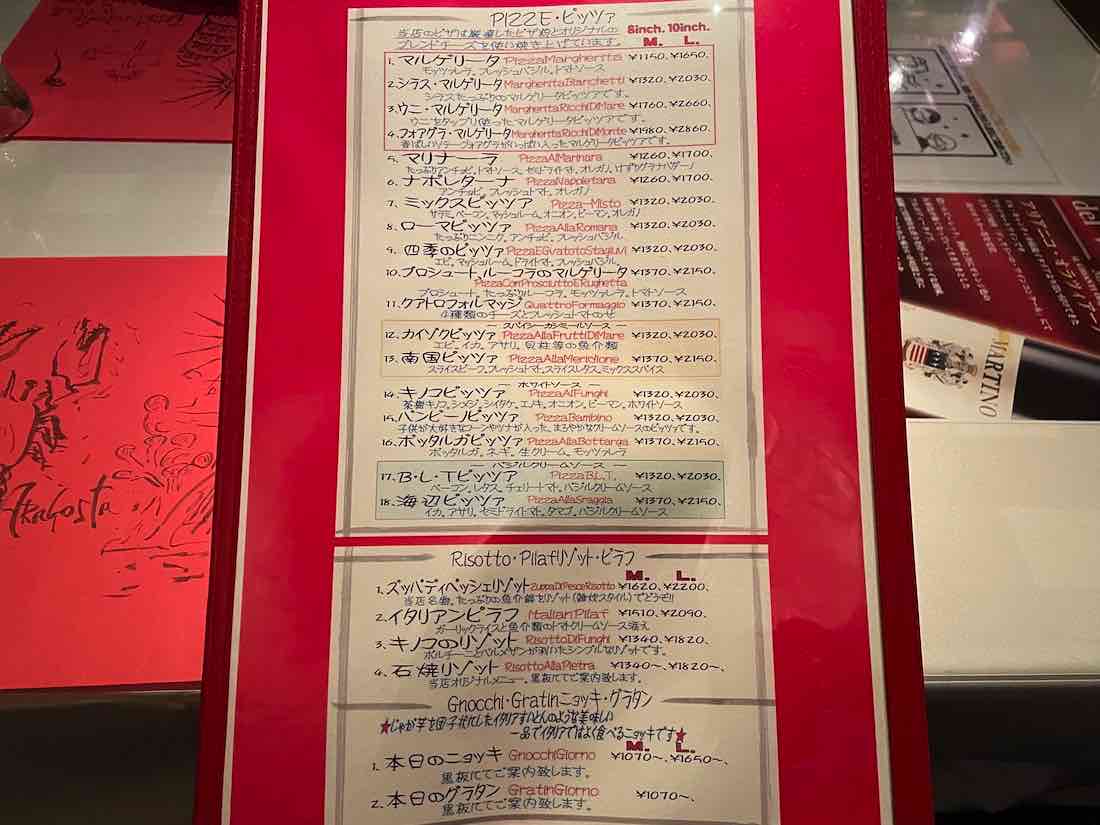 PIZZE・ピッツァ
当店のピザは厳選したピザ粉とオリジナルの
ブレンドチーズを使い焼き上げています。
8inch. 10inch.
M. L.
1. マルゲリータ PizzaMargherita ¥1150、¥1650、
モッツァレラ、フレッシュバジル、トマトソース
2. シラス・マルゲリータ MargheritaBianchetti ¥1320、¥2030、
シラスたっぷりのマルゲリータピッツァです。
3. ウニ・マルゲリータ MargheritaRicchiDiMare ¥1760、¥2660、
ウニをタップリ使ったマルゲリータピッツァです。
4. フォアグラ・マルゲリータ MargheritaRicchiDiMonte ¥1980、¥2860、
香ばしいソテーフォアグラがいっぱい入ったマルゲリータピッツァです。
5. マリナーラ PizzaAlMarinara ¥1260、¥1700、
たっぷりアンチョビ、トマトソース、セミドライトマト、オレガノ、けずりグラナパダーノ
6. ナポレターナ PizzaNappletana ¥1260、¥1700、
アンチョビ、フレッシュトマト、オレガノ
7. ミックスピッツァ Pizza-Misto ¥1320、¥2030、
サラミ、ベーコン、マッシュルーム、オニオン、ピーマン、オレガノ
8. ローマピッツァ PizzaAllaRomana ¥1320、¥2030、
たっぷりニンニク、アンチョビ、フレッシュバジル
9. 四季のピッツァ ¥1320、¥2030、
エビ、マッシュルーム、ドライトマト、フレッシュバジル
10. プロシュート、ルーコラのマルゲリータ ¥1370、¥2150、
PizzaConProsciuttoERughetta
プロシュート、たっぷりルーコラ、モッツァレラ、トマトソース
11. クアトロフォルマッジ QuattroFormaggio ¥1370、¥2150、
4種類のチーズとフレッシュトマトのせ
スパイシーガラミールソース
12. カイゾクピッツァ PizzaAllaFruttiDiMare ¥1320、¥2030、
エビ、イカ、アサリ、貝柱等の魚介類
13. 南国ピッツァ PizzaAllaMeridione ¥1370、¥2150、
スライスビーフ、フレッシュトマト、スライスレタス、ミックススパイス
ホワイトソース
14. キノコピッツァ PizzaAlFunghi ¥1320、¥2030、
茶樹キノコ、シメジ、シイタケ、エノキ、オニオン、ピーマン、ホワイトソース
15. バンビーノピッツァ PizzaBambino ¥1320、¥2030、
子供が大好きなコーンやツナが入った、まろやかなクリームソースのピッツァです。
16. ボッタルガピッツァ PizzaAllaBottarga ¥1370、¥2150、
ボッタルガ、ネギ、生クリーム、モッツァレラ
バジルクリームソース
17. B・L・Tピッツァ PizzaB.L.T. ¥1320、¥2030、
ベーコン、レタス、チェリートマト、バジルクリームソース
18. 海辺ピッツァ PizzaAllaSraggia ¥1370、¥2150、
イカ、アサリ、セミドライトマト、タマゴ、バジルクリームソース
Risotto・Pilafリゾット・ピラフ
M. L.
1. ズッパディペッシェリゾット ZuppaDiPesceRisotto ¥1620、¥2200、
当店名物、たっぷりの魚介鍋をリゾット(雑炊スタイル)でどうぞ!!
2. イタリアンピラフ ItalianPilaf ¥1510、¥2090、
ガーリックライスと魚介類のトマトクリームソース添え
3. キノコのリゾット RisottoDiFunghi ¥1340、¥1820、
ポルチーニとパルメザンが利いたシンプルなリゾットです。
4. 石焼リゾット RisottoAllaPietra ¥1340〜、¥1820〜、
当店オリジナルメニュー。黒板にてご案内致します。
Gnocchi・Gratinニョッキ・グラタン
★じゃが芋を団子状にしたイタリアすいとんのような美味しい
一品でイタリアではよく食べるニョッキです★
M. L.
1. 本日のニョッキ GnocchiGiorno ¥1070〜、¥1650〜、
黒板にてご案内致します。
2. 本日のグラタン GratinGiorno ¥1070〜、
黒板にてご案内致します。
Aragosta
MARTINO